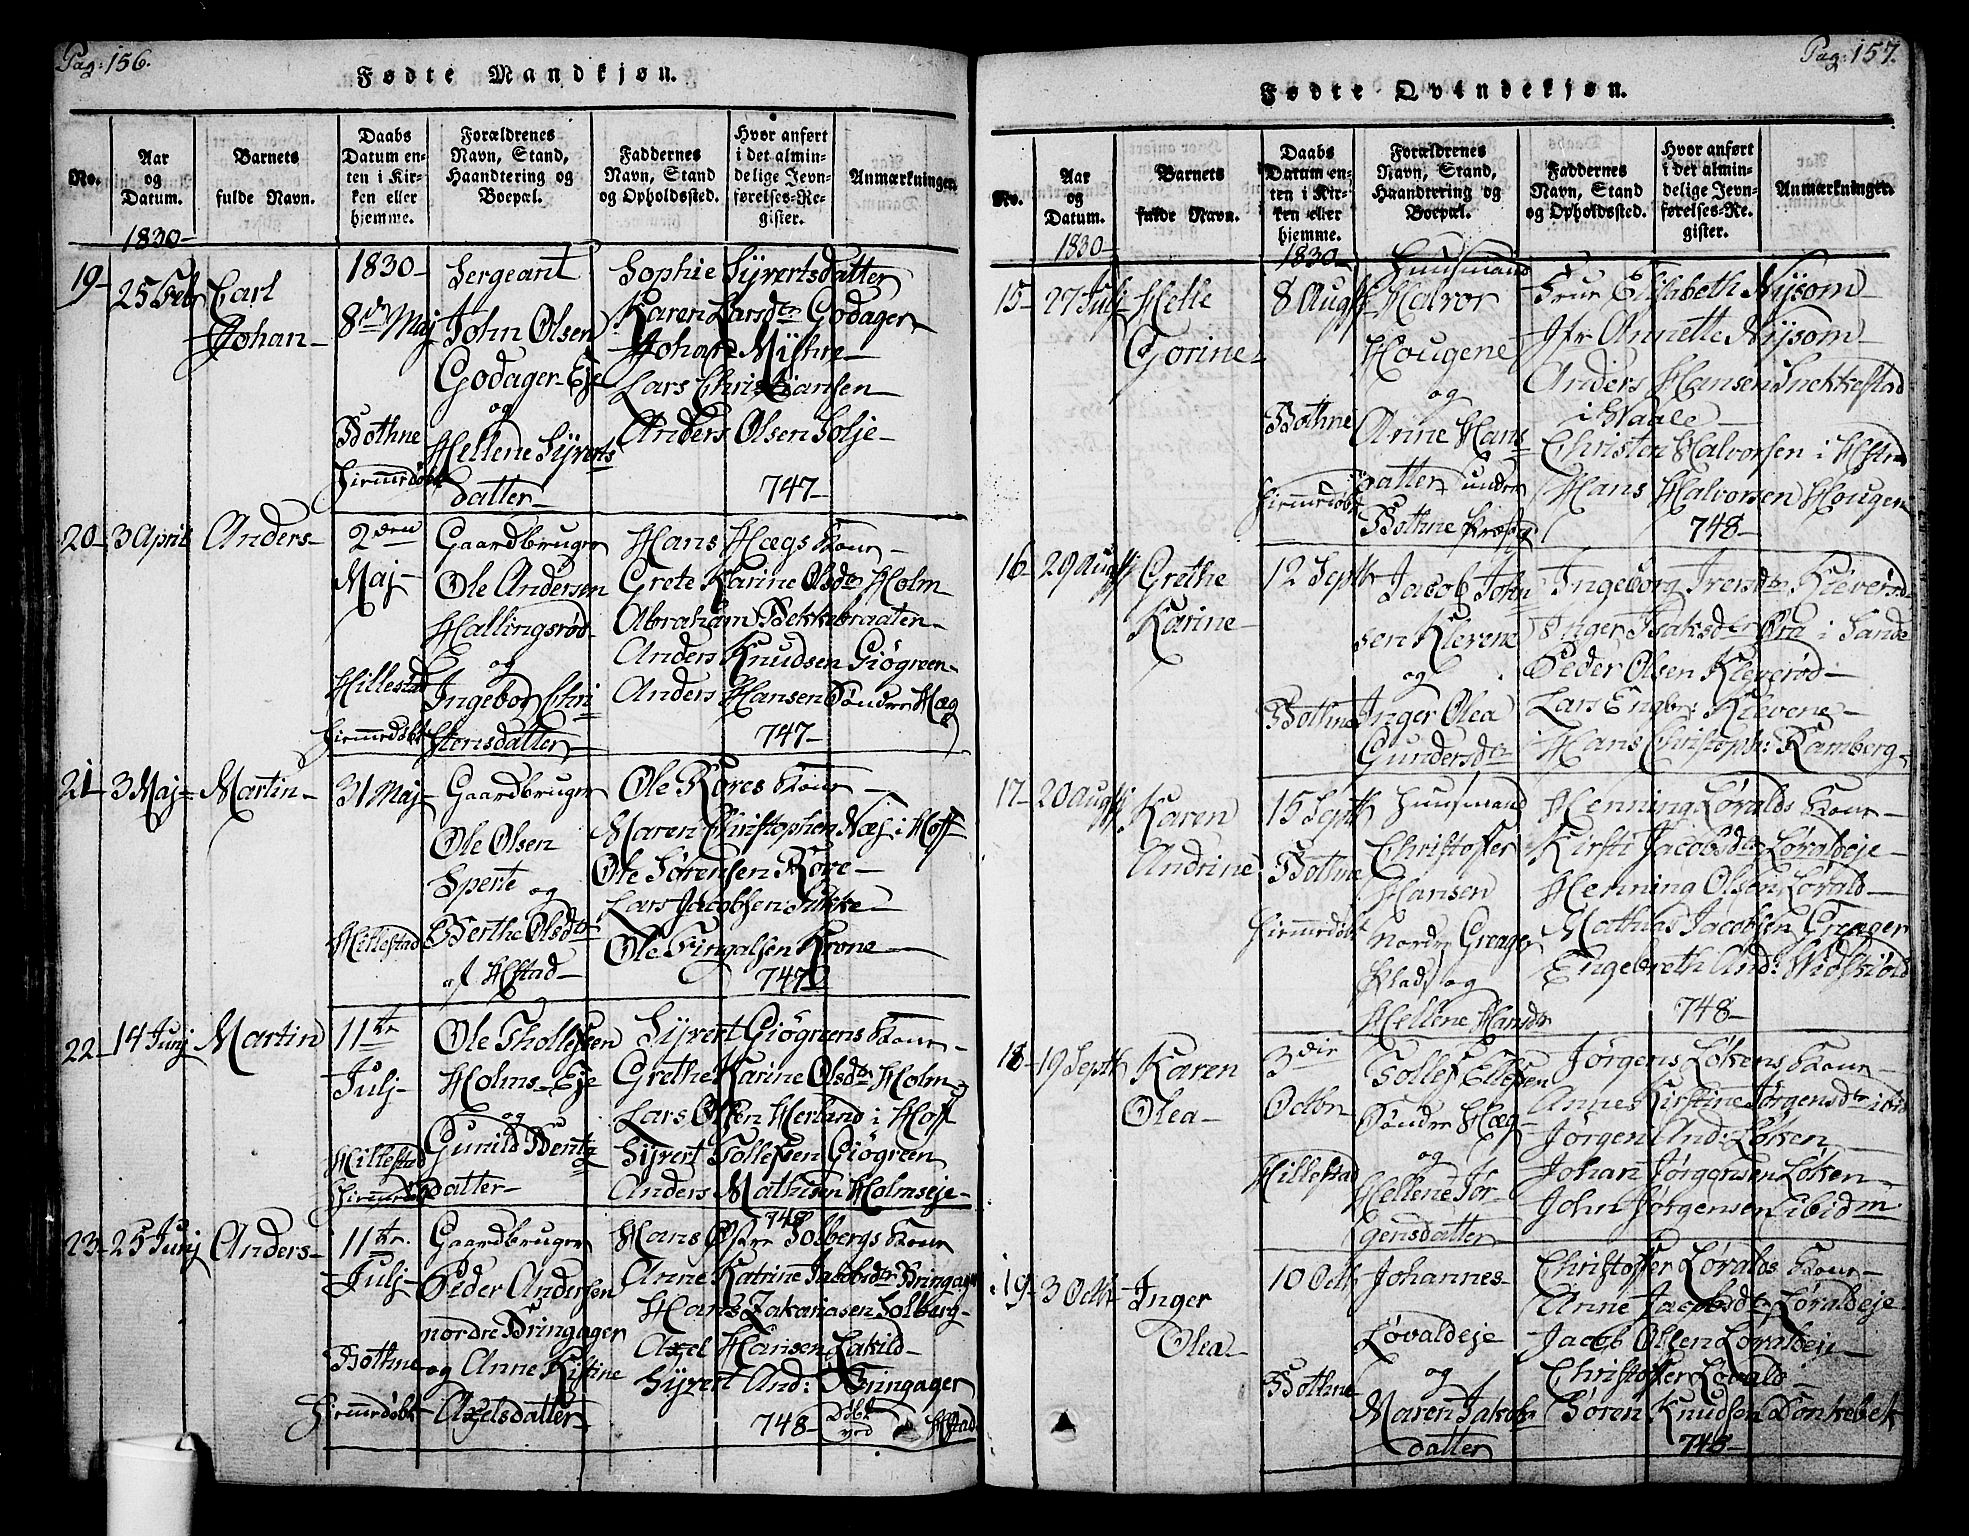 Pag: 156.
Fødte Mandkjøn.
No.
Aar og Datum.
Barnets fulde Navn.
Daabs Datum enten i Kirken eller hjemme.
Forældrenes Navn, Stand, Haandtering og Boepæl.
Faddernes Navn, Stand og Opholdssted.
Hvor anført i det almindelige Jevnførelses-Register.
Anmærkninger.
1830-
19-
25 Febr
Carl
Johan-
1830-
8de Maj
Bothne
Hiemmedøbt
Sergeant
John Olsen
Godager-Eje
og
Hellene Syverts
datter-
Sophie Syvertsdatter
Karen Larsdtr Godager
Johan Myhre-
Lars Christiansen-
Anders Olsen Solje-
747-
20-
3 April
Anders-
2den
Maj-
Hillestad
Hiemmedøbt
Gaardbruger
Ole Andersen
Hallingsrød-
og
Ingebor Chri
stensdatter-
Hans Hægs Kone-
Grete Karine Olsdtr Holm
Abraham Bekkebraaten-
Anders Knudsen Giøgreen-
Anders Hansen Søndre Hæg
747-
21-
3 Maj-
Martin-
31 Maj-
Hillestad
Gaardbruger
Ole Olsen
Spente
og
Berthe Olsdtr
af Hstad-
Ole Røres Kone-
Maren Christophersen Næs i Hoff
Ole Sørensen Røre-
Lars Jacobsen Sukke-
Ole Fingalsen Krone-
747
22-
14 Junj
Martin
11te
Julj-
Hillestad
Hiemmedøbt
Ole Thollefsen
Holms-Eje
og
Gunild Bents
datter-
Syvert Giøgreens Kone-
Grethe Karine Olsdtr Holm-
Lars Olsen Herland i Hoff
Syvert Tollefsen Giøgreen
Anders Mathisen Holmseje-
748
23-
25 Junj
Anders-
11te
Julj-
Bothne
Hiemmedøbt
Gaardbruger
Peder Andersen
nordre Bringager
og Anne Kistine
Axelsdatter-
Hans Østre Solbergs Kone
Anne Katrine Jacobsdtr Bringager
Hans Zakariasen Solberg-
Axel Hansen Lakild-
Syvert And: Bringager
748-
Døbt
ved
Hstad
Pag: 157.
Fødte Qvindekjøn.
No.
Aar og Datum.
Barnets fulde Navn.
Daabs Datum enten i Kirken eller hjemme.
Forældrenes Navn, Stand, Haandtering og Boepæl.
Faddernes Navn, Stand og Opholdssted.
Hvor anført i det almindelige Jevnførelses-Register.
Anmærkninger.
1830-
15-
27 Julj
Helle
Gorine-
1830-
8 Augst
Bothne
Hiemmedøbt
Huusmand
Halvor
Hougene
og
Anne Hans
datter under
Bothne Præstg
Frue Elisabeth Nysom-
Jfr Annette Nysom-
Anders Hansen Snekkestad
i Waale-
Christen Halvorsen i Hstad
Hans Halvorsen Hougen
748-
16-
29 Augst
Grethe
Karine-
12 Septb
Bothne
Jacob John
sen Klevene
og
Inger Olea
Gundersdtr
Ingeborg Iversdtr Kleverød-
Inger Isaksdtr Øra i Sande
Peder Olsen Kleverød-
Lars Engbr: Klevene-
Hans Christoph: Ramberg-
17-
20 Augst
Karen
Andrine
15 Septb
Bothne
Hiemmedøbt
Huusmand
Christoffer
Hansen
Nordre Greager
Plads og
Hellene Hansdtr
Henning Løvalds Kone-
Kirsti Jacobsdtr Løvaldeje-
Henning Olsen Løvald-
Mathias Jacobsen Greager
Engebreth And: Widskiold
748-
18-
19 Septb
Karen
Olea-
3die
Octbr
Hillestad
Tollef Ellefsen
Søndre Hæg-
og
Hellene Jør
gensdatter
Jørgens Løkens Kone-
Anne Kirstine Jørgensdtr ibid
Jørgen And: Løken
Johan Jørgensen Løken-
John Jørgensen ibidm
19-
3 Octbr
Inger
Olea-
10 Octb
Bothne
Johannes-
Løvaldeje
og
Maren Jakobs
datter
Christoffer Løvalds Kone-
Anne Jacobsdtr Løvaldeje-
Jacob Olsen Løvaldeje-
Christoffer Løvald-
Søren Knudsen Dønkebek
748-